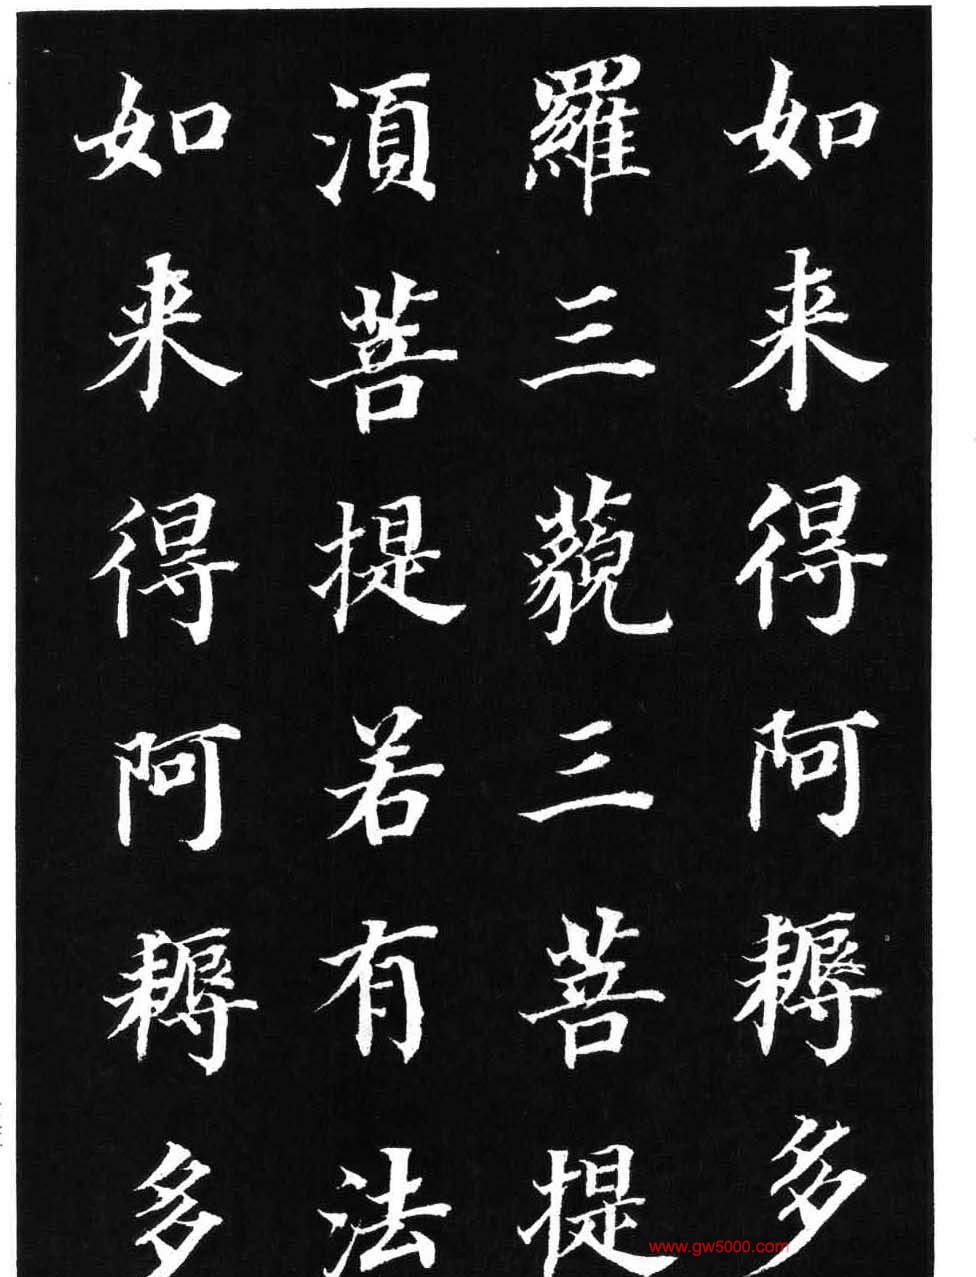 如来得阿耨多
羅三藐三菩提
湏菩提若有法
如来得阿耨多
www.gw5000.com